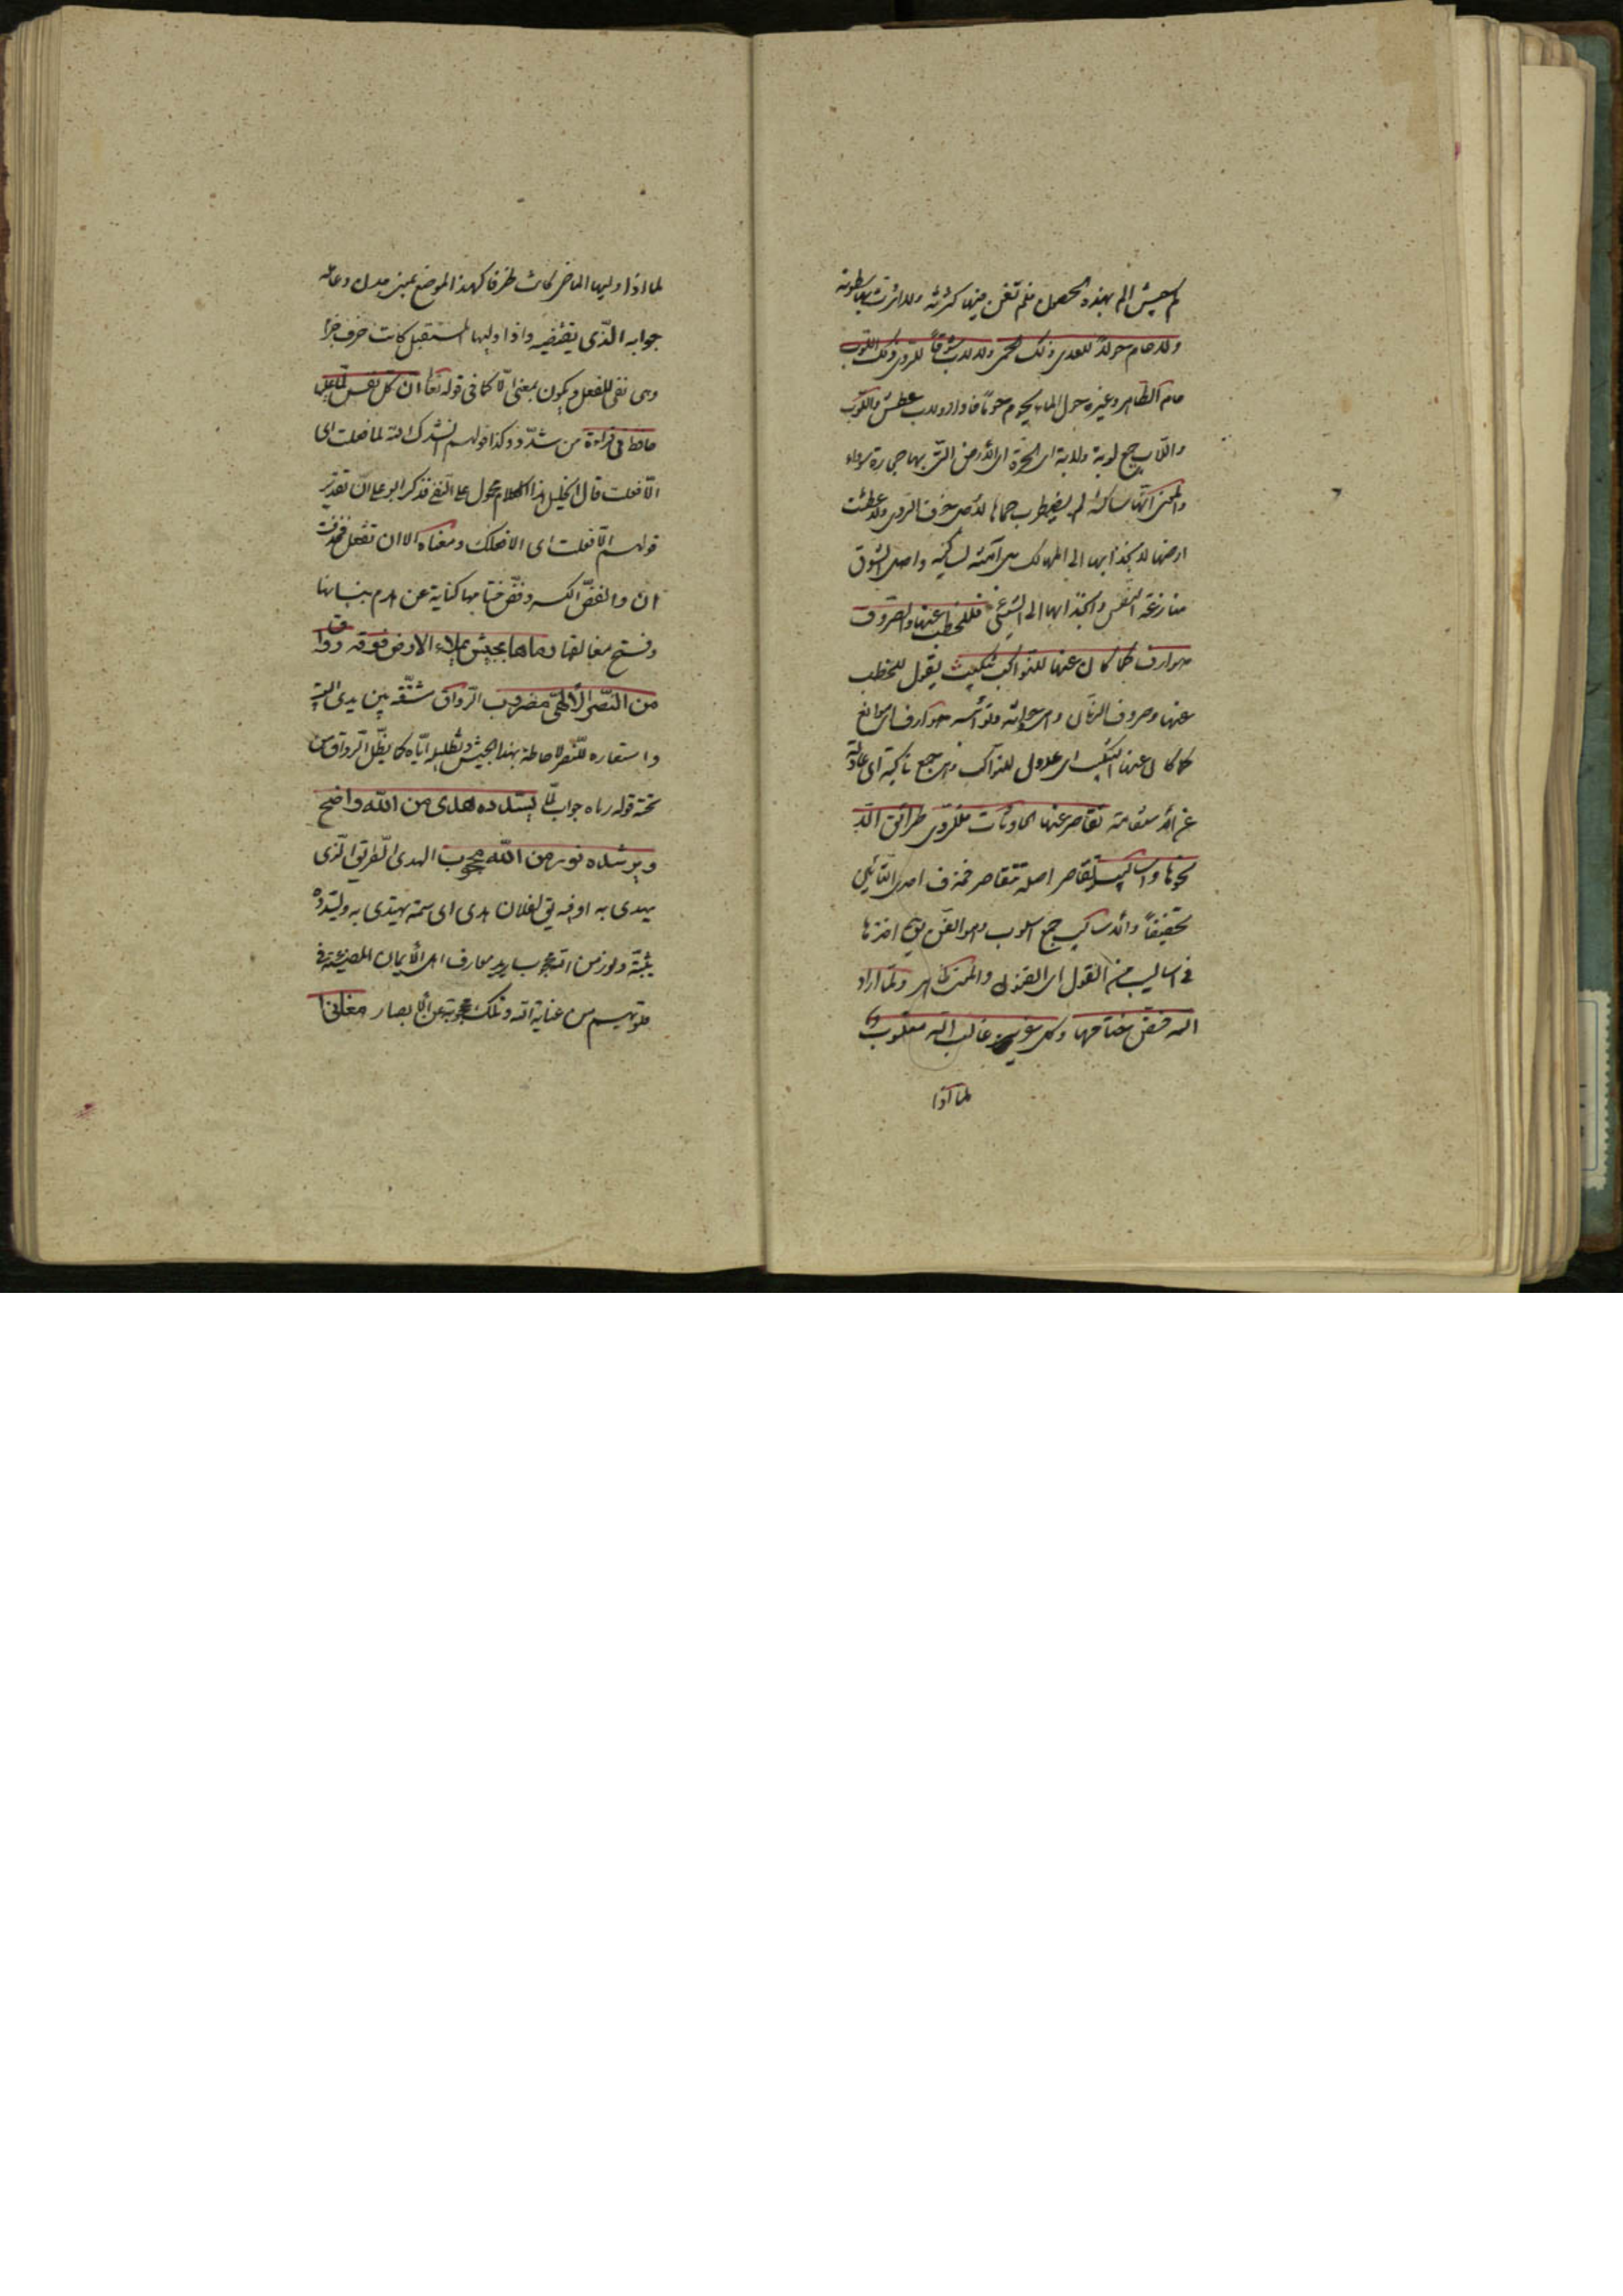 كم جيش الم بهذه الحصون فلم تغن منها كثرته ولا اثرت بها سطوته
ولا حام حولا للعدى ذلك الحمى ولا لاب شوقا للردى ذلك اللوب
حام الطاهر وغيره حول الماء يحوم حوما فاودار ولاب عطش واللوب
واللاب جمع لوبة ولابة اى الحرة اى الأرض التى بها حجارة سوداء
والمعنى انها ساكنة لم يضطرب حماها لأدنى خوف الردى ولا عطشت
ارضها لانجذابها الى المهالك بل آمنة ساكنة واصل الشوق
منازعة النفس وانجذابها الى الشئ فللخطب عنها والصروف
صوارف كما كان عنها للنواكب تنكيب يقول للخطب
عنها وصروف الزمان وهى حوادثه ونوائبه صوارف اى موانع
كما كان عنها تنكيب اى عدول للنواكب وهى جمع ناكبة اى عادلة
غير مستقامة تقاصر عنها الحادثات فللردى طرائق الا
نحوها واساليب تقاصر اصله تتقاصر فحذف احدى التائين
تخفيفاً والأساليب جمع اسلوب وهو الفن يق اخذنا
فى اساليب من القول اى الفنون والمعنى ظاهر ولما اراد
الله فض ختامها وكل عزيز غالب الله مغلوب
لما اذا
لما اذا وليها الماضى كانت ظرفا كهذا الموضع بمعنى حين وعامله
جوابه الذى يقتضيه واذا وليها المستقبل كانت حرف جزا
وهى نفى للفعل ويكون بمعنى الا كما فى قوله تعا ان كل نفس لما عليها
حافظ فى قراءة من شدد وكذا قولهم انشدك الله لما فعلت اى
الا فعلت قال الخليل هذا الكلام محمول على النفى فذكر ابو على ان تقدير
قولهم الا فعلت اى الا فعلك ومعناه الا ان تفعل فحذفت
ان والفض الكسر وفض ختامها كناية عن هدم بنيانها
وفتح مغالقها رماها بجيش يملاء الارض فوقه رواق
من النصر الألهى مضروب الرواق شقة بين يدى البيت
واستعاره للنصر لاحاطته بهذا الجيش وتظليله اياه كما يظل الرواق من
تحته قوله رماه جواب لما يسدده هدى من الله واضح
ويرشده نور من الله محجوب الهدى الطريق الذى
يهدى به او فيه يق لفلان هدى اى سمة يهتدى به ويسدده
يثبته ونور من الله محجوب يريد معارف اهل الأيمان المضيئة فى
قلوبهم من عناية الله وتلك محجوبة عن الأبصار مغانيا